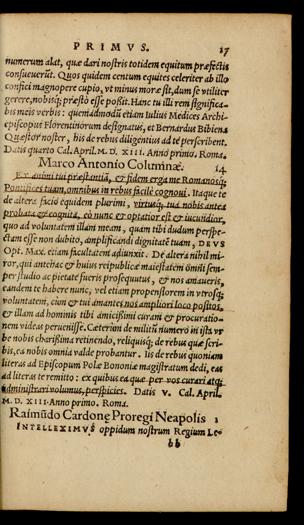 PRIMVS. 17
numerum alat, quæ dari nostris totidem equitum præfectis
consueuerũt. Quos quidem centum equites celeriter ab illo
confici magnopere cupio, vt minus moræ sit, dum se vtiliter
gerere, nobisq; præsto esse possit. Hanc tu illi rem significa-
bis meis verbis: quemadmodũ etiam Iulius Medices Archi-
episcopus Florentinorum designatus, et Bernardus Bibiena
Quæstor noster, his de rebus diligentius ad te perscribent.
Datis quarto Cal. April. M. D. XIII. Anno primo. Roma.
Marco Antonio Columnæ. 14
Ex animi tui præstantia, & fidem erga me Romanosq;
Pontifices tuam, omnibus in rebus facilè cognoui. Itaque te
de altera facio equidem plurimi, virtusq; tua nobis antea
probata & cognita, eò nunc & optatior est & iucundior,
quo ad voluntatem illam meam, quam tibi dudum perspe-
ctam esse non dubito, amplificandi dignitatẽ tuam, DEVS
Opt. Max. etiam facultatem adiunxit. De altera nihil mi-
ror, qui antehac & huius reipublicæ maiestatem omni sem-
per studio ac pietate fueris prosequutus, & nos amaueris,
eandem te habere nunc, vel etiam propensiorem in vtrosq;
voluntatem, cùm & tui amantes nos ampliori loco positos,
& illam ad hominis tibi amicissimi curam & procuratio-
nem videas peruenisse. Cæterùm de militũ numero in ista vr
be nobis charissima retinendo, reliquisq; de rebus quæ scri-
bis, ea nobis omnia valde probantur. Iis de rebus quoniam
literas ad Episcopum Polæ Bononiæ magistratum dedi, eas
ad literas te remitto: ex quibus ea quæ per vos curari atq;
administrari volumus, perspicies. Datis v. Cal. April.
M. D. XIII. Anno primo. Roma.
Raimũdo Cardonę Proregi Neapolis 1
INTELLEXIMVS oppidum nostrum Regium Le-
bb